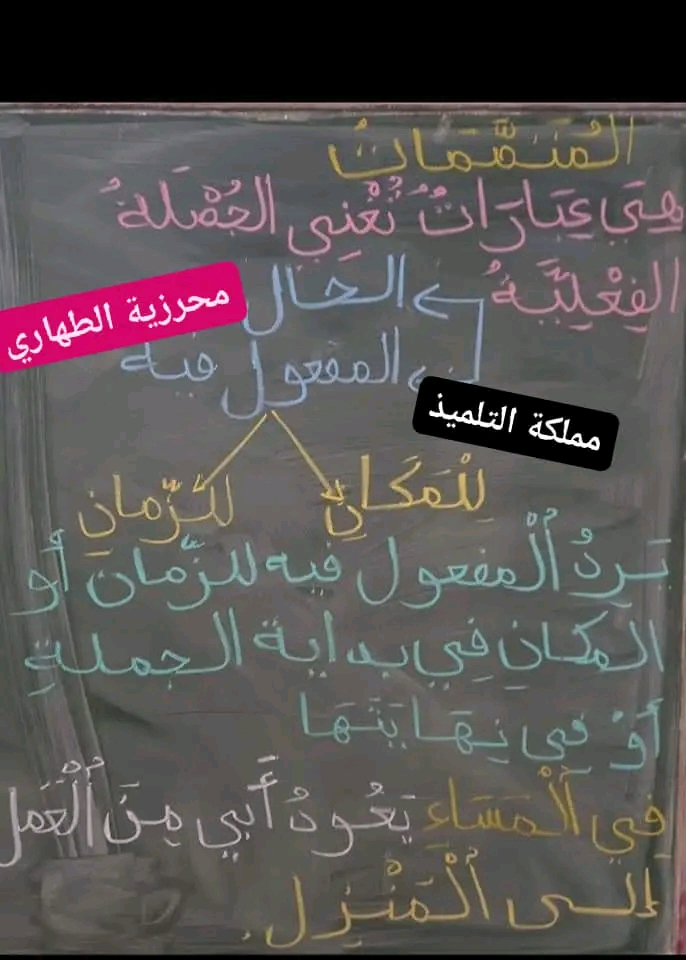 المُتَمِّمَاتُ
هِيَ عِبَارَاتٌ تُغْنِي الجُمْلَةُ
الفِعْلِيَّةُ الحال
محرزية الطهاري
المفعول فيه
مملكة التلميذ
لِلْمَكَانِ للزّمانِ
يَرِدُ اُلْمفعول فيه للزّمان أو
المكانِ فِي بداية الجملةِ
أَوْ فِي نِهَايَتَهَا
فِي اُلْمَسَاءِ يَعُودُ أَبِي مِنَ اُلْعَمَل
إلى اُلْمَنْزِلِ.